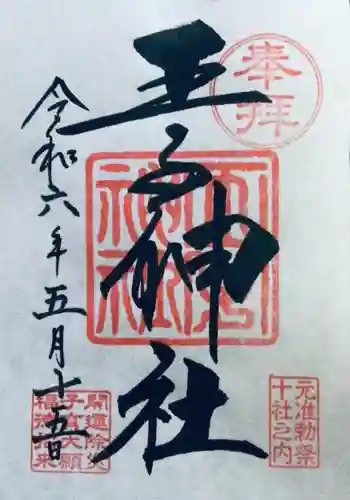 奉拝
王子神社
元准勅祭
十社之内
令和六年五月十五日
開運除災